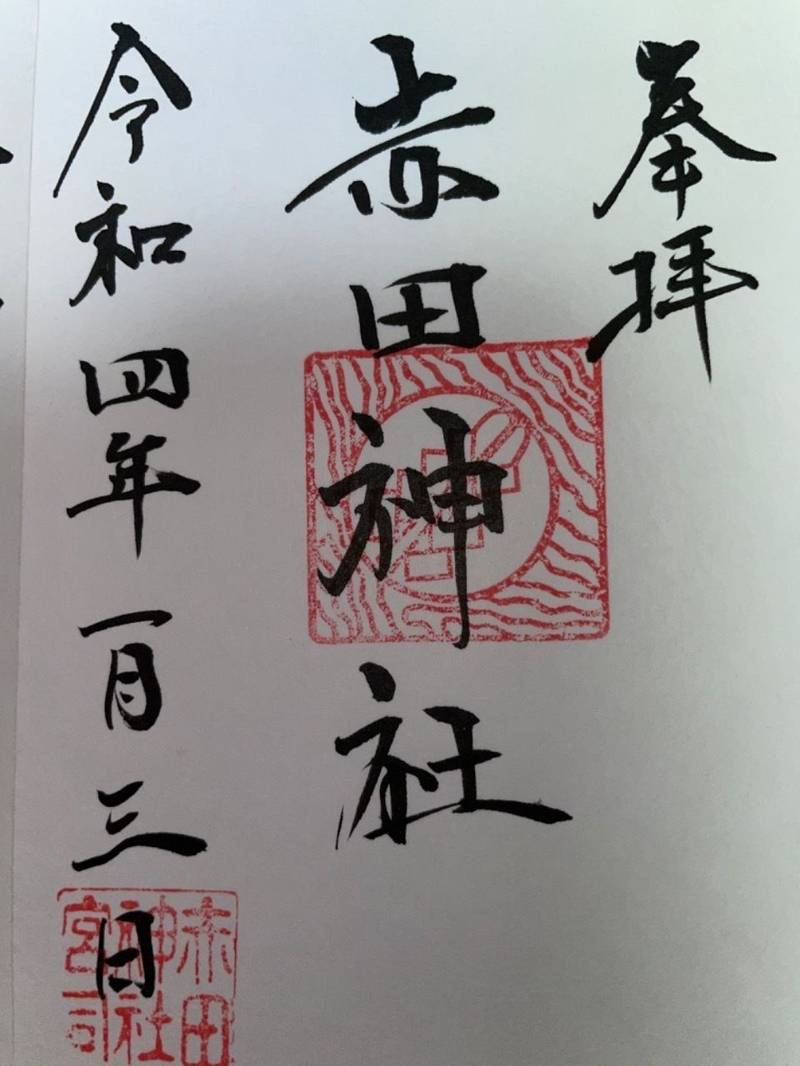 奉拝
赤田神社
令和四年一月三日
赤田
神社
宮司